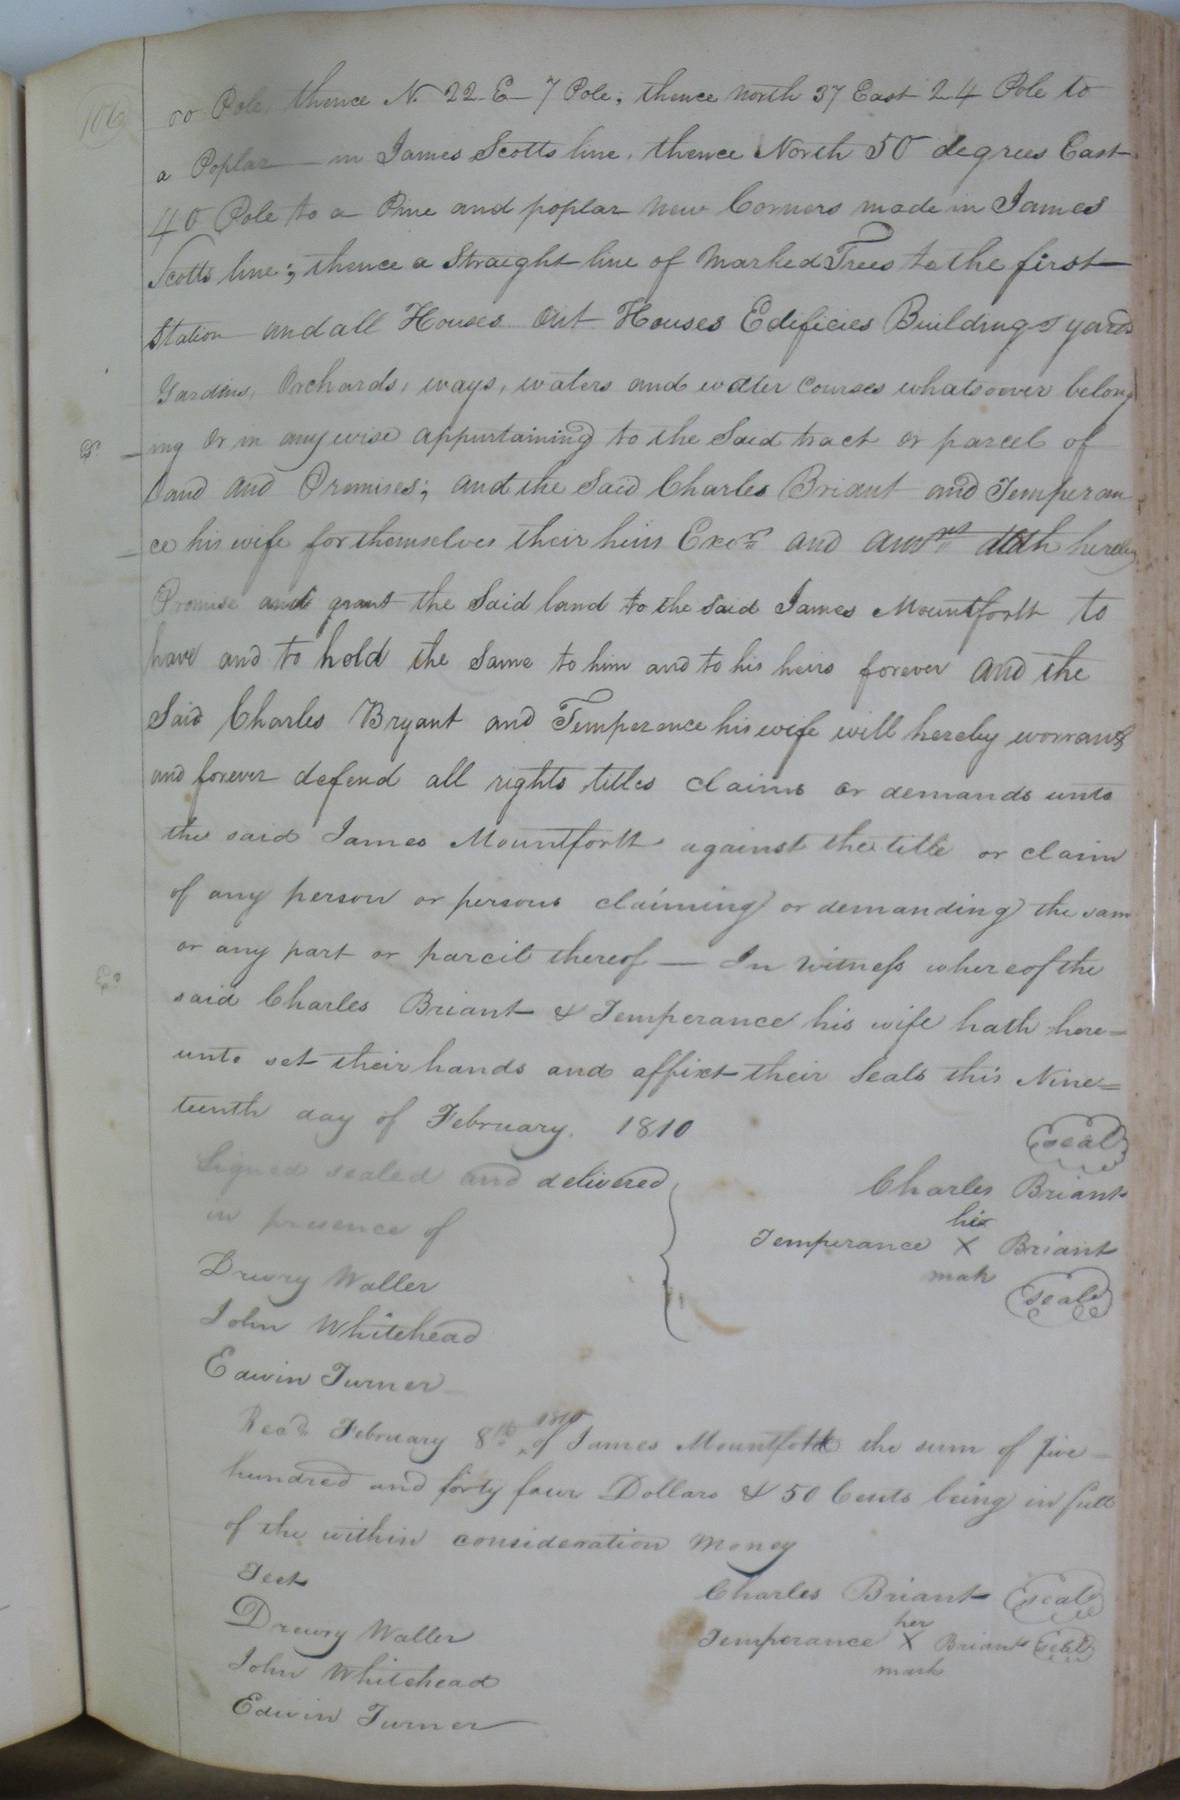 106
00 Pole, thence N. 22 E 7 Pole; thence North 37 East 24 Pole to
a Poplar in James Scotts line, thence North 50 degrees East
40 Pole to a Pine and poplar new Corners made in James
Scotts line; thence a Straight line of Marked Trees to the first
Station and all Houses Out Houses Edificies Buildings yards
Gardins, Orchards, ways, waters and water courses whatsoover belong
ing Or in any wise appurtaining to the Said tract or parcel of
Land and Premises; and the Said Charles Briant and Temperan
ce his wife for themselves their heirs Exors and hereby
Promise and grant the Said land to the said James Mountforth to
have and to hold the Same to him and to his heirs forever and the
Said Charles Bryant and Temperence his wife will hereby worrant
and forever defend all rights titles claims or demands unto
the said James Mountforth against the title or claim
of any person or persons claiming or demanding the sam
or any part or parcil thereof — In Witness whereof the
said Charles Briant & Temperance his wife hath here=
unto set their hands and affixt their Seals this Nine=
teenth day of February. 1810
seal
Signed sealed and delivered
Charles Briant
in presence of
her
Temperance X Briant
mak
seal
Drewry Waller
John Whitehead
Edwin Turner
1810
Recd February 8th of James Mountforth the sum of five
hundred and forty four Dollars & 50 Cents being in full
of the within consideration Money
Test
Charles Briant seal
Drewry Waller
her
Temperance X Briant seal
mark
John Whitehead
Edwin Turner